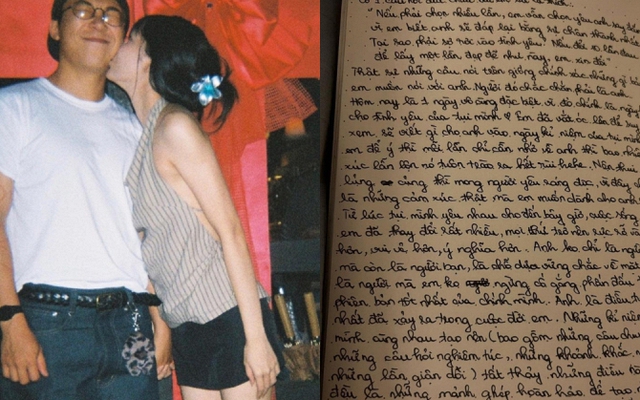 " Nếu phải chọn nhiều lần, em vẫn chọn yêu anh
vì em biết anh sẽ đáp lại bằng sự chân thành
Tại sao phải sợ rơi vào tình yêu? Nếu để 10 lần đau
để lấy một lần đẹp đẽ như này, em xin đổi"
Thật sự những câu nói trên giống chính xác những gì
em muốn nói với anh. Người đó chắc chắn phải là anh
Hôm nay là 1 ngày vô cùng đặc biệt vì đó chính là ngày
cho tình yêu của tụi mình Em đã vắt óc lên để
xem sẽ viết gì cho anh vào ngày kỉ niệm của tụi mình
em để ý thì mỗi lần chỉ cần nhớ về anh thì bao nhiêu
xúc lẫn lộn nó tuôn trào ra hết rùi hehe. Nên thui
lủng củng thì mong người yêu sáng đọc, vì đây
là những cảm xúc thật mà em muốn dành cho anh
Từ lúc tụi mình yêu nhau cho đến bây giờ, cuộc sống
em đã thay đổi rất nhiều, mọi thứ trở nên rực rỡ
hơn, vui vẻ hơn, ý nghĩa hơn. Anh ko chỉ là người
mà còn là người bạn, là chỗ dựa vững chắc về mặt
là người mà em ko ngừng cố gắng phấn đấu
phiên bản tốt nhất của chính mình. Anh là điều
nhất đã xảy ra trong cuộc đời em. Những kỉ niệm
mình cùng nhau tạo nên (bao gồm những câu chuyện
những câu hỏi nghiêm túc, những khoảnh khắc
những lần giận dỗi) tất thảy những điều
đều là những mảnh ghép hoàn hảo để tạo